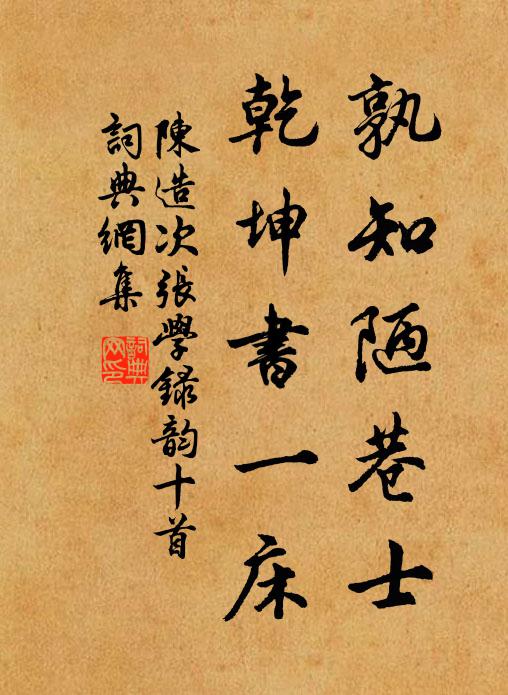 孰知陋巷士
乾坤書一床
陳造次張學錄韵十首
詞典網集
詞典
网印